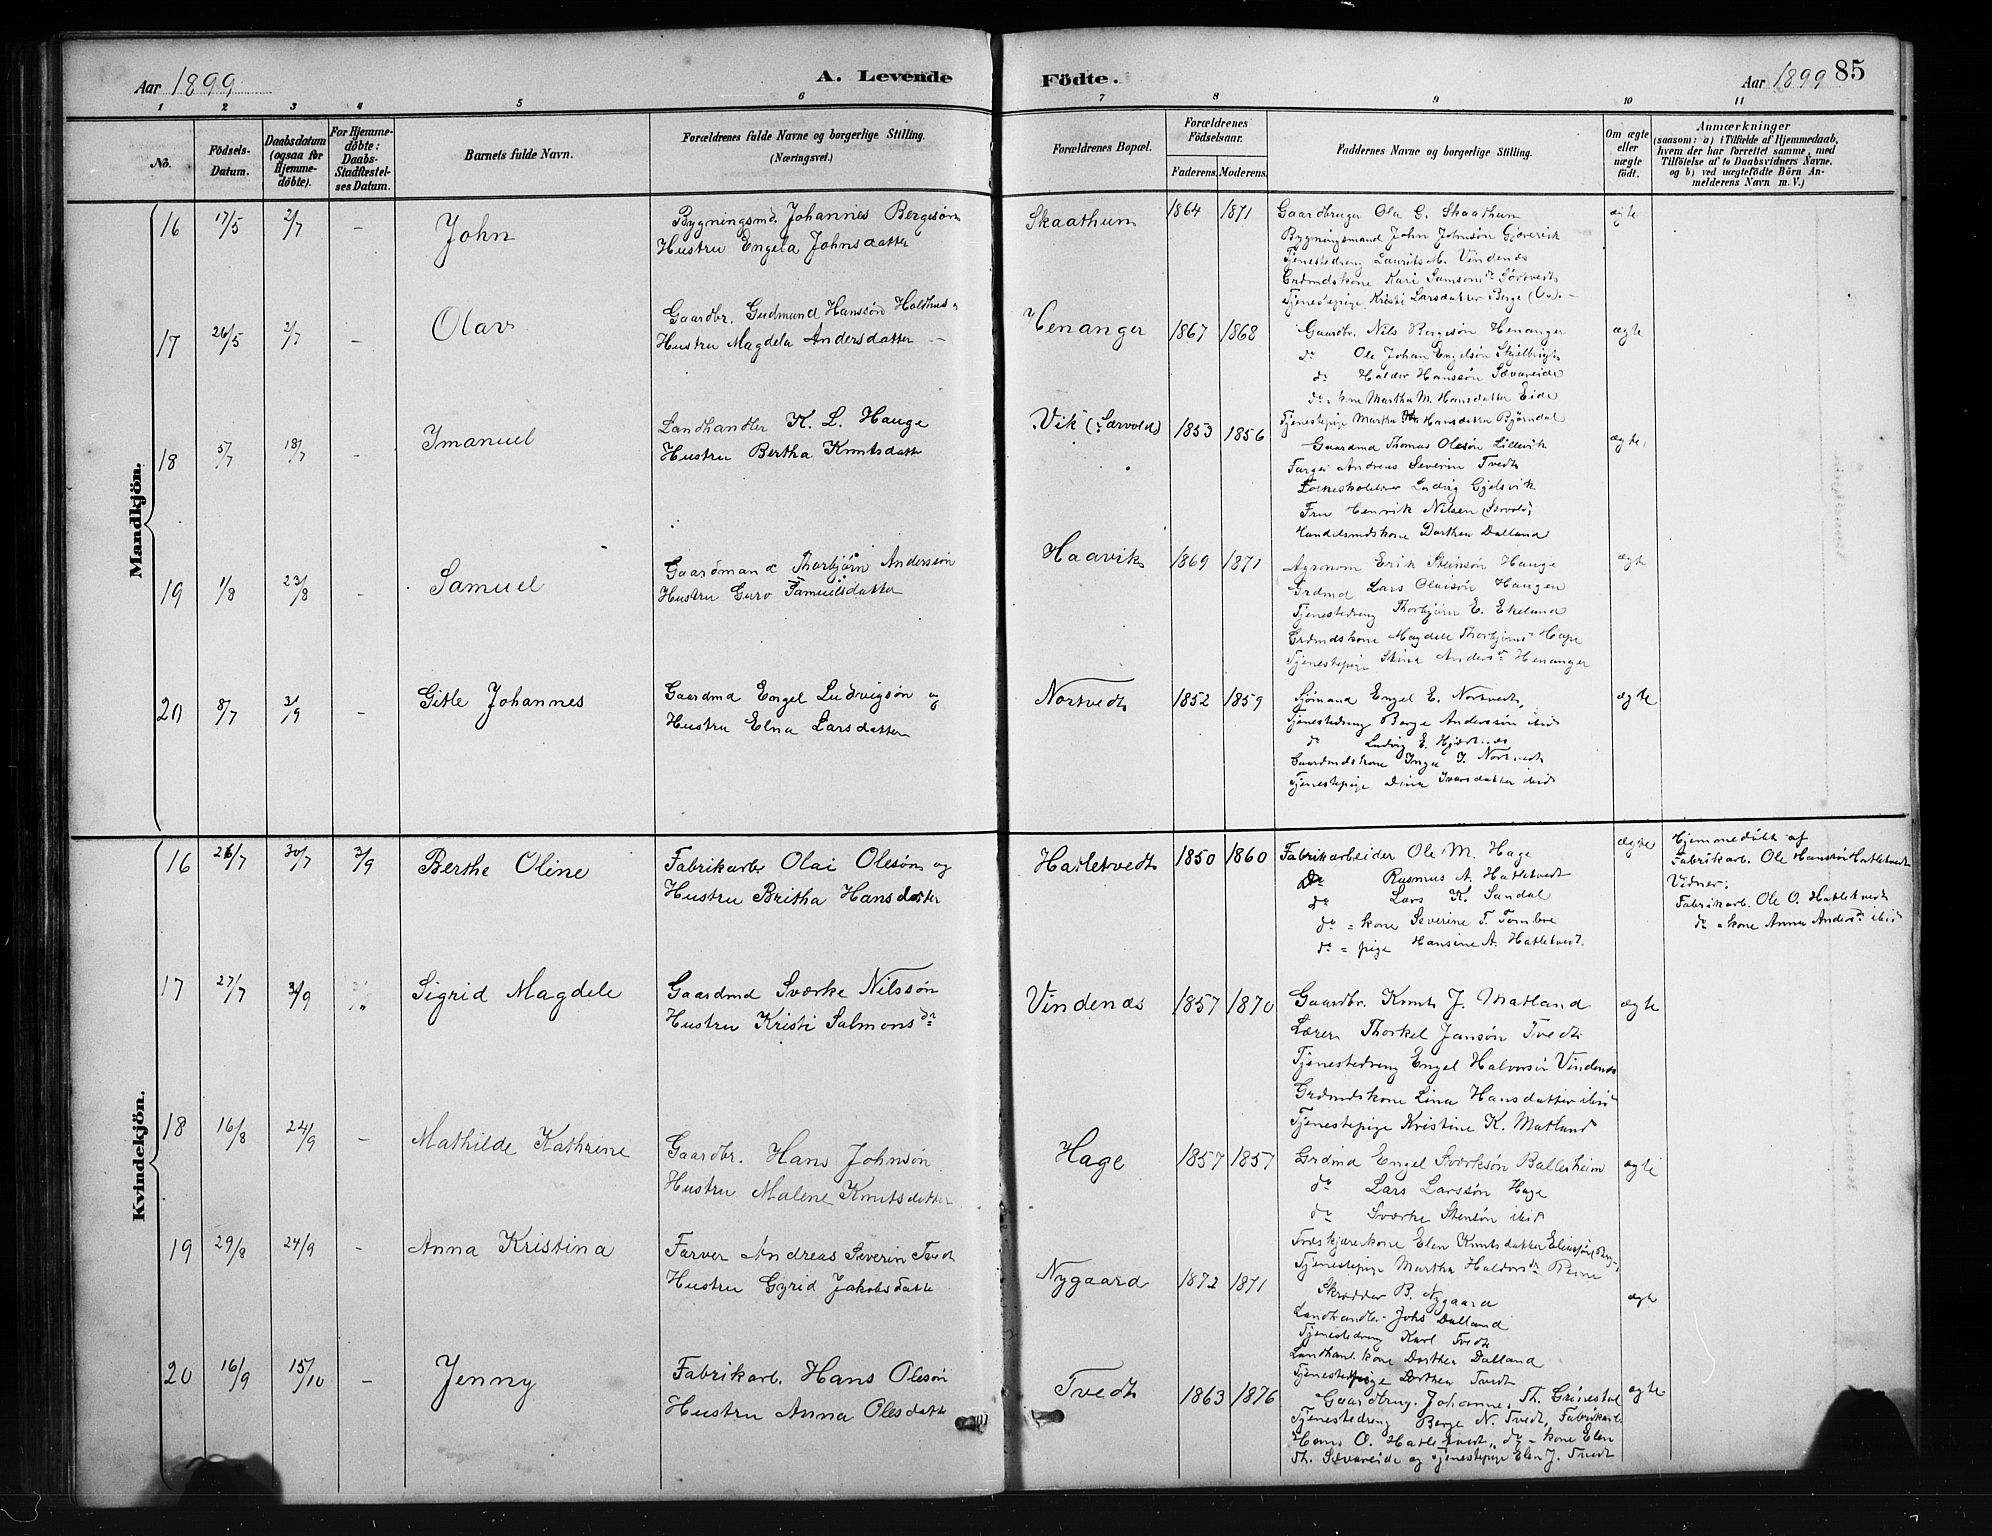 Aar 1899
A. Levende
Födte.
Aar 1899
85
1 2 3 4 5 6 7 8 9 10 11
No.
Födsels-
Datum.
Daabsdatum
(ogsaa for
Hjemme-
döbte).
For Hjemme-
döbte:
Daabs-
Stadfæstel-
ses Datum.
Barnets fulde Navn.
Forældrenes fulde Navne og borgerlige Stilling.
(Næringsvei.)
Forældrenes Bopæl.
Forældrenes
Födselsaar.
Faderens. Moderens.
Faddernes Navne og borgerlige Stilling.
Om ægte
eller
uægte
födt.
Anmærkninger
(saasom: a) i Tilfælde af Hjemmedaab,
hvem der har forrettet samme, med
Tilföielse af to Daabsvidners Navne,
og b) ved uægtefödte Börn An-
melderens Navn m. V.)
Mandkjön.
16 17/5 2/7 - John
Bygningsmd. Johannes Bergesøn
Hustru Engela Johnsdatter
Skaathun 1864 1871
Gaardbruger Ola G. Skaathun
Bygningsmand John Johnsøn Gjöverik
Tjenestedreng Laurits M. Vindenæs
Grdmdskone Kari Samsonsdr Sörtvedt
Tjenestepige Kristi Larsdatter Berge (Os). -
ægte
17 26/5 2/7 - Olav
Gaardbr. Gudmund Hanssøn Holdhus
Hustru Magdela Andersdatter -
Henanger 1867 1868
Gaardbr. Nils Bergesøn Henanger
do Ole Johan Engelsøn Skjelbreid
do Haldor Hanssøn Sævareide
do = kne Martha M. Hansdatter Eide
Tjenestepige Martha Hansdatter Björndal
ægte
18 5/7 18/7 - Imanuel
Landhandler K. L. Hauge
Hustru Bertha Knutsdatter
Vik (Særvold) 1853 1856
Gaardmd Thomas Olesøn Lillevik
Farger Andreas Severin Tvedt
Ludvig Gjelsvik
Fru Henrik Nilsen
Handelsmdskone Dorthea Dalland
ægte
19 1/8 23/8 - Samuel
Gaardmand Thorbjörn Anderssøn
Hustru Guro Samuelsdatter
Haavik 1869 1871
Agronom Erik Steinsøn Hauge
Grdmd Lars Olaisøn Haugen
Tjenestedreng Thorbjörn E. Ekeland
Grdmdskone Magdele Thorbjörnsdr Hage
Tjenestepige Stina Andersdr Henanger
ægte
20 8/7 3/9 - Gitle Johannes
Gaardmd Engel Ludvigsøn og
Hustru Elna Larsdatter
Nortvedt 1852 1859
Sjömand Engel E. Nortvedt,
Tjenestedreng Berge Anderssøn ibid
do Ludvig E.
Gaardmdskone Inga I. Nortvedt
Tjenestepige Dina Ivarsdatter ibid
ægte
Kvindekjön.
16 26/7 30/7 3/9 Berthe Oline
Fabrikarbr Olai Olesøn og
Hustru Britha Hansdatter
Hatletvedt 1850 1860
Fabrikarbeider Ole M. Hage
do Rasmus A. Hatletvedt
do Lars K. Sandal
do = kone Severine T. Tombre
do = pige Hansine A. Hatletvedt
ægte
Hjemmedöbt af
Fabrikarb. Ole Hanssøn Hatletvedt
Vidner:
Fabrikarb. Ole O. Hatletvedt
do = kone Anna Andersdr ibid
17 27/7 3/9 Sigrid Magdele
Gaardmd Sværke Nilssøn
Hustru Kristi Salmonsdr
Vindenæs 1857 1870
Gaardbr. Knut J. Matland
Lærer Thorkel Jansøn Tvedt
Tjenestedreng Engel Halvorsør Vindenæs
Grdmdskone Lina Hansdatter ibid
Tjenestepige Kristine K. Matland
ægte
18 16/8 24/9 - Mathilde Kathrine
Gaardbr. Hans Johnsøn
Hustru Malene Knutsdatter
Hage 1857 1857
Grdmd Engel Sværksøn Ballesheim
do Lars Larssøn Hage
do Sværke Stensøn ibid
Elen Knutsdatter
Tjenestepige Martha Haldorsdr
ægte
19 29/8 24/9 - Anna Kristina
Farver Andreas Severin Tvedt
Hustru Gyrid Jakobsdatter
Nygaard 1872 1871
Skrædder B. Nygaard
Landhandler Johs Dalland
Tjenestedreng Karl Tvedt
Landhanl. kone Dorthea Dalland
Tjenestepige Dorthea Tvedt
ægte
20 16/9 15/10 - Jenny
Fabrikarb. Hans Olesøn
Hustru Anna Olesdatter
Tvedt 1863 1876
Gaardbrug. Johannes Th. Grönestøl
Tjenestedreng Berge N. Tvedt, Fabrikarb
Hans O. Hatletvedt, do - kone Elen
Th. Sævareide og Tjenestepige Elen J. Tvedt
ægte